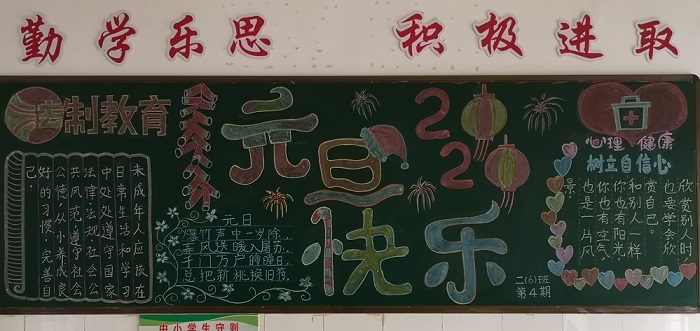 勤学乐思 积极进取
法制教育
未成年人应该在
日常生活和学习
中处处遵守国家
法律法规社会公
共风范，遵守社会
公德，从小养成良
好的习惯，完善自
己。
元旦
快乐
2020
元日
爆竹声中一岁除，
春风送暖入屠苏。
千门万户曈曈日，
总把新桃换旧符。
心理健康
树立自信心
欣赏别人时
也要学会欣
赏自己。
和别人一样
你也有阳光
你也有空气
也是一片风
景。
二(6)班
第4期
中小学生守则